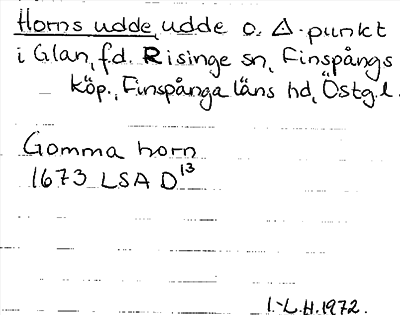 Horns udde, udde o. △-punkt
i Glan, f.d. Risinge sn, Finspångs
köp., Finspånga läns hd, Östg.l.
Gomma horn
1673 LSA D¹³
I.-L.H.1972.